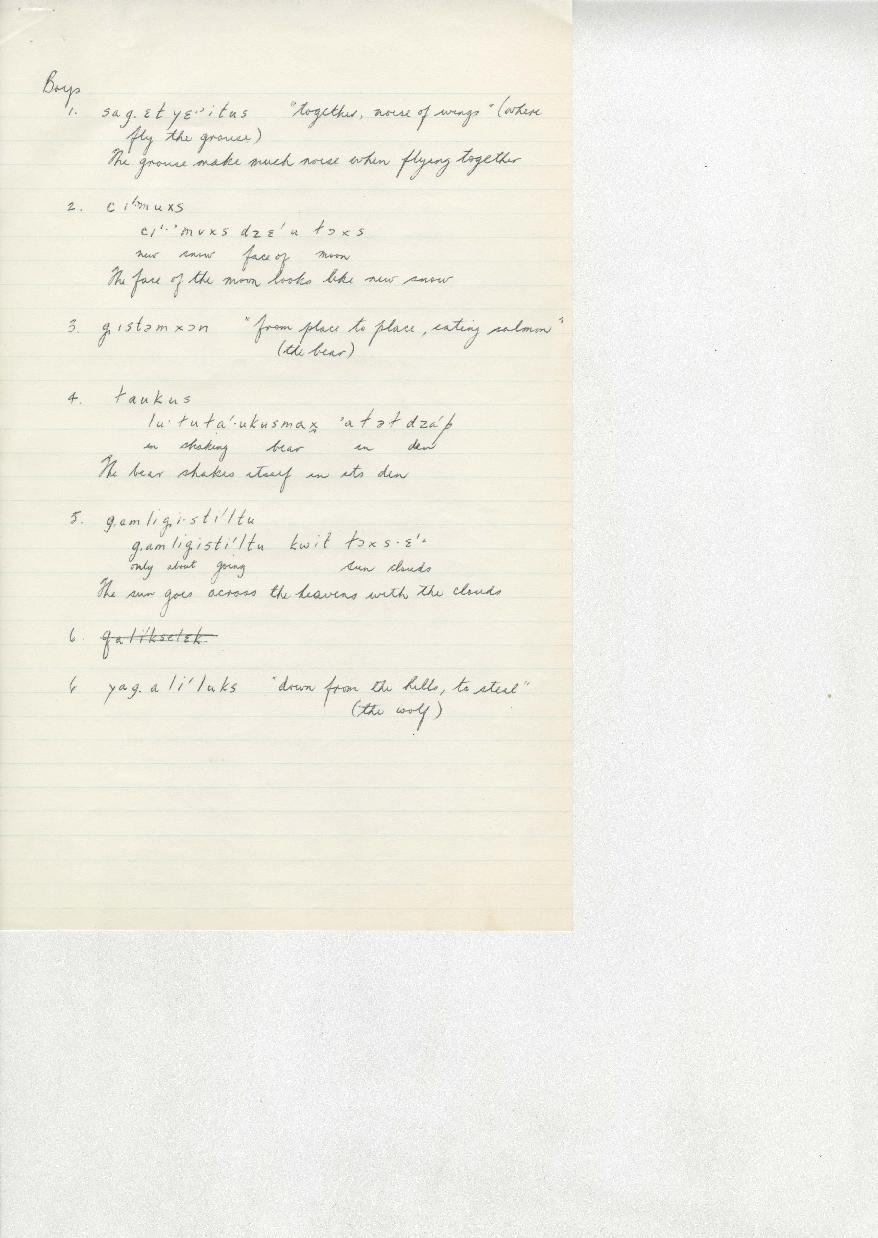 Boys
1. sag.ɛt yɛ·'itus "together, noise of wings" (where
fly the grouse)
The grouse make much noise when flying together
2. ci'·muxs
ci'·'muxs dzɛ'u łɔxs
new snow face of moon
The face of the moon looks like new snow
3. g.ıstəmxɔn "from place to place, eating salmon"
(the bear)
4. taukus
lu·tuta'·ukusmax̣ 'atət dzá'p
in shaking bear in den
The bear shakes itself in its den
5. g.amligi·sti'ltu
g.amligisti'ltu kwit łɔxs·ɛ'·
only about going sun clouds
The sun goes across the heavens with the clouds
6.
6 yag.ali'luks "down from the hills, to steal"
(the wolf)